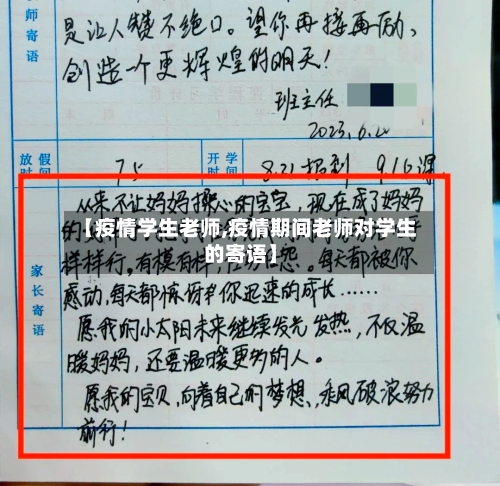 师寄语
是让人赞不绝口。望你再接再励,
创造一个更辉煌的明天!
班主任
2023.6.20
放假时间
7.5
开学时间
8.31报到 9.1上课
家长寄语
从来不让妈妈操心的宝宝,现在成了妈妈
【疫情学生老师,疫情期间老师对学生
的寄语】
样样行,有模有样,任劳任怨。每天都被你
感动,每天都惊讶你迅速的成长......
愿我的小太阳未来继续发光发热,不仅温
暖妈妈,还要温暖更多的人。
愿我的宝贝,向着自己的梦想,乘风破浪努力
前行!